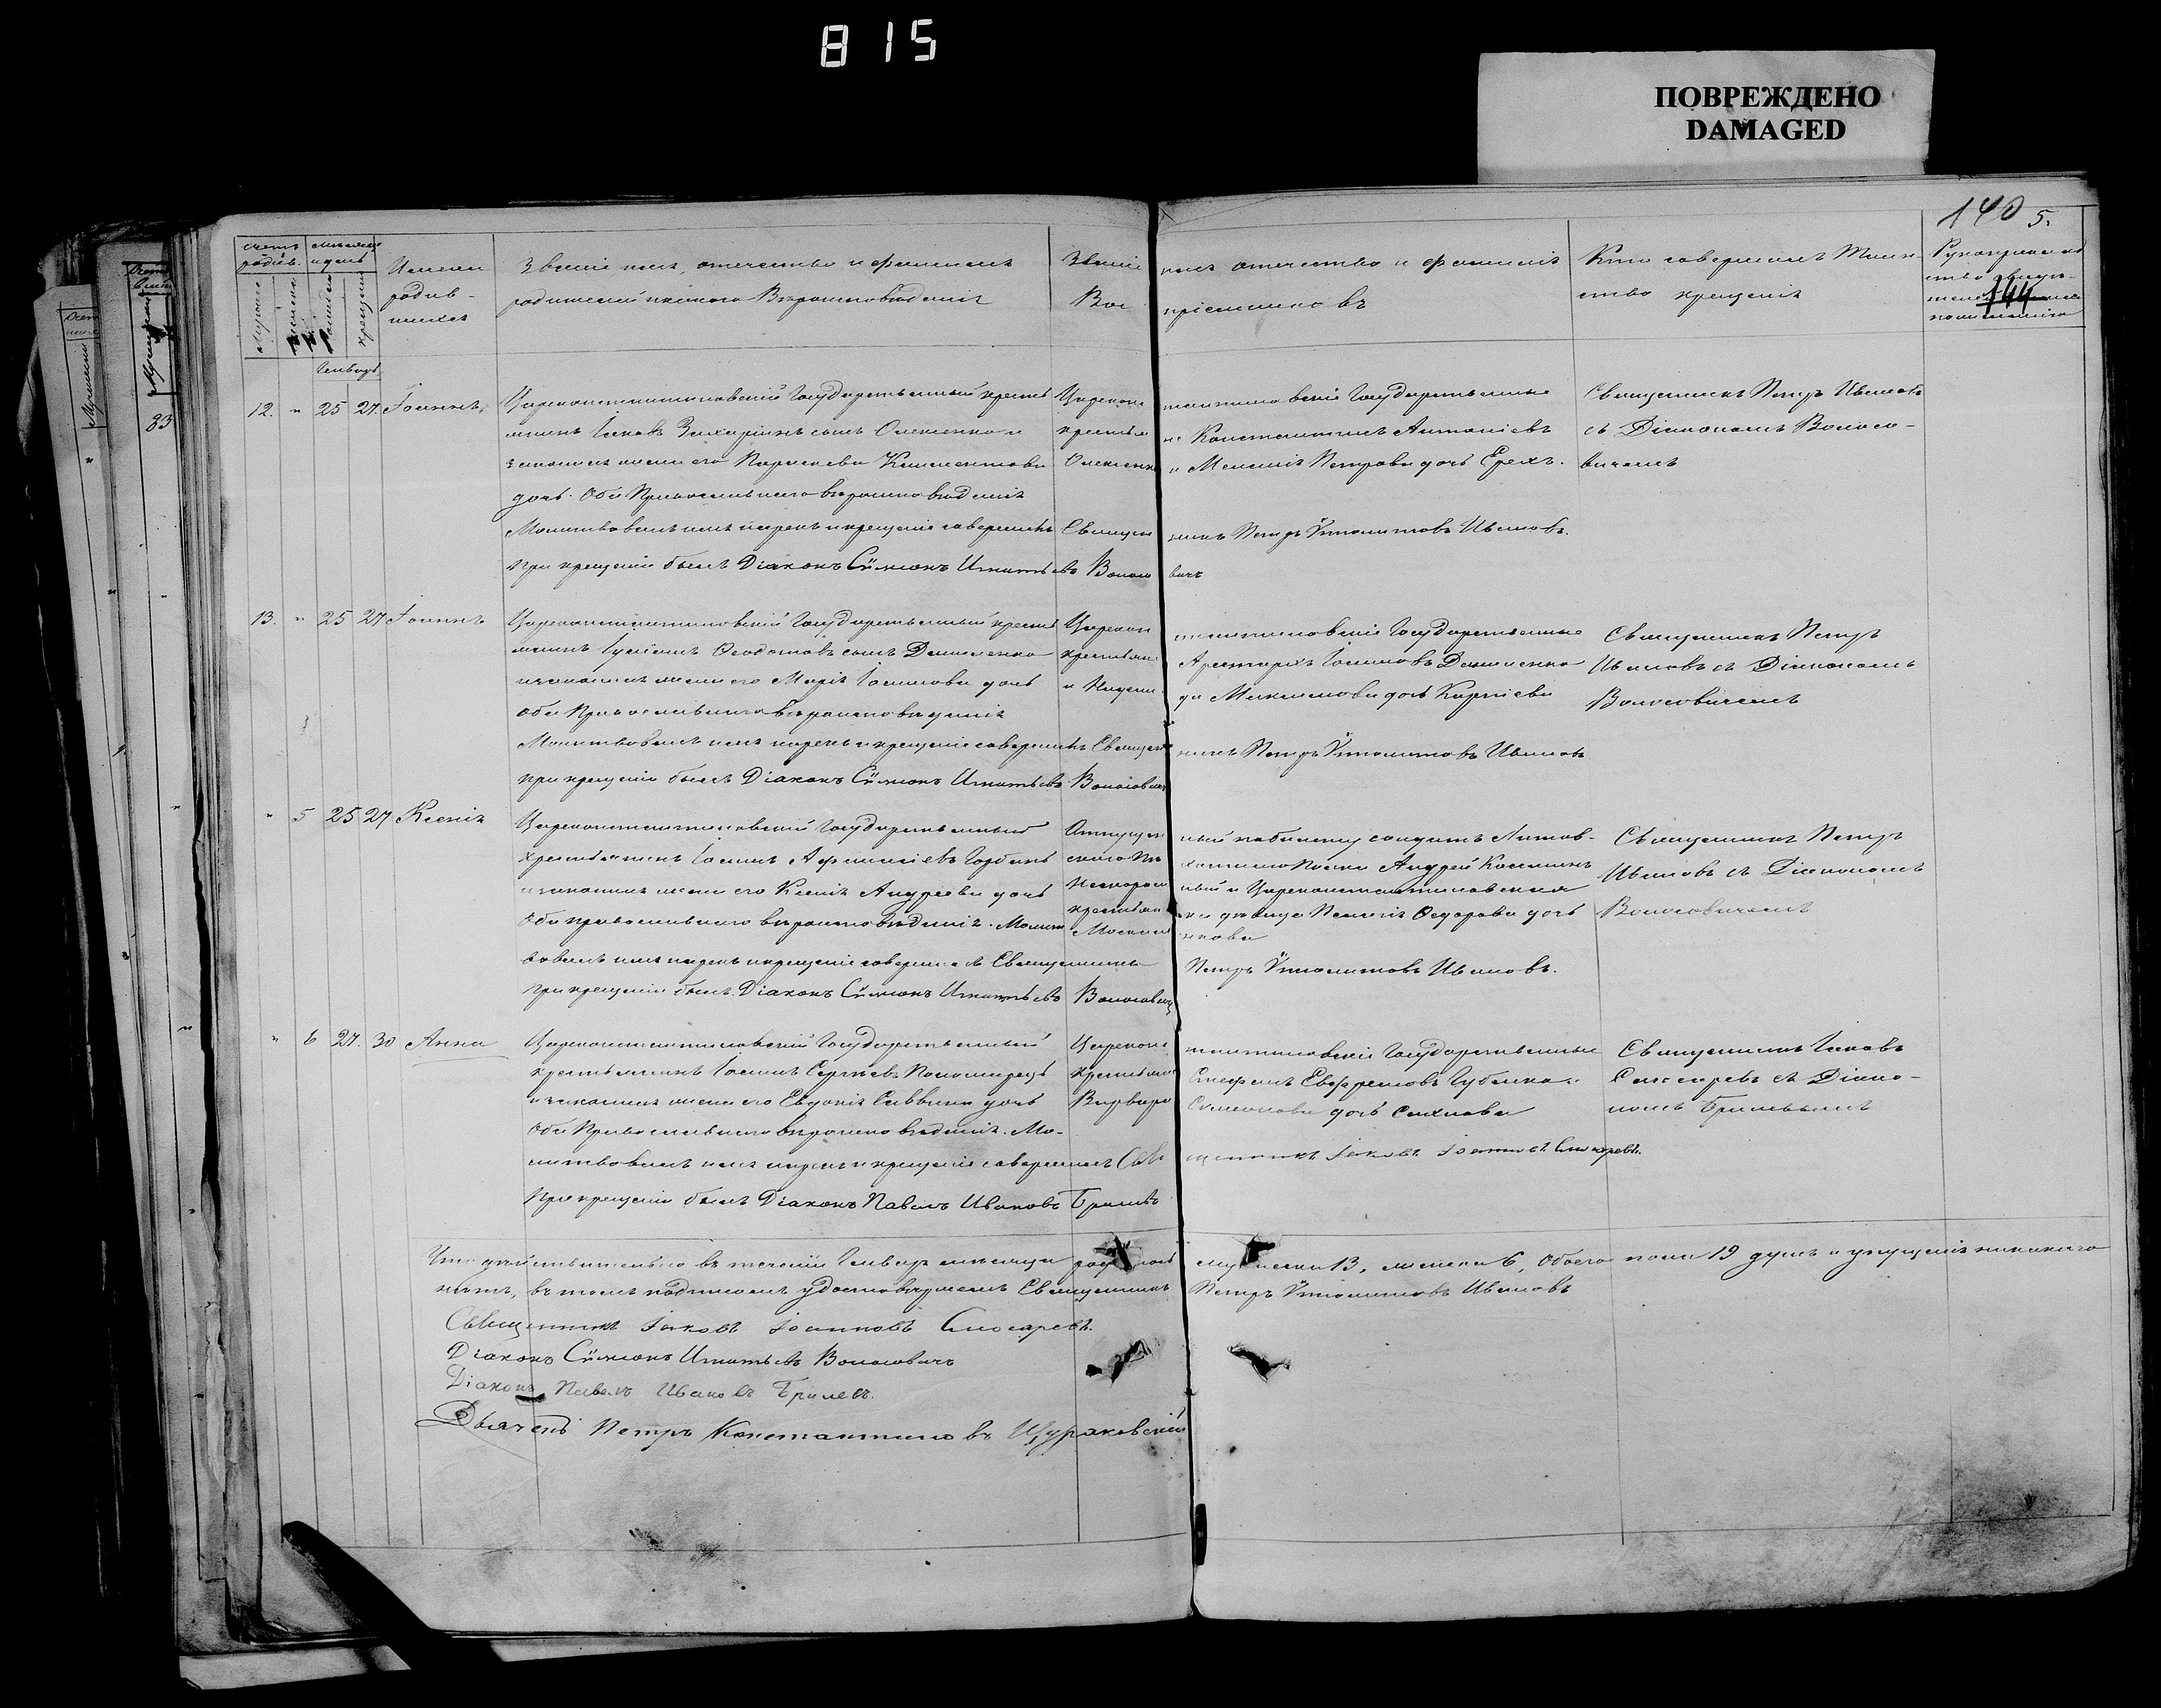 815
ПОВРЕЖДЕНО
DAMAGED
140 5.
144
Счетъ родив. Мѣсяцъ и день Имена родив- шихся
Званіе имя, отечество и фамилія
родителей и какого Вѣроисповѣданія
Званіе имя отечество и фамилія
Вос пріемниковъ
Кто совершалъ Таин-
ство крещенія
Генваръ
12. " 25 27. Іоаннъ
Цареконстантиновскій Государственный крестья
нинъ Іаковъ Захаріинъ сынъ
законная жена его Параскева Климентова
дочь. Оба Православнаго вѣроисповѣданія
Молитвовалъ имя нарекъ и крещеніе совершилъ Священ
при крещеніи былъ Діаконъ Сѵмеонъ Игнатьевъ Волосо
Цареконс
крестьян
тантиновскіе Государственные
не Константинъ Антоніевъ
и Меланія Петрова дочь
никъ Петръ Ѵпполитовъ Ивановъ.
вичъ
Священникъ Петръ Ивановъ
съ Діакономъ Волосо-
вичемъ
13. " 25 27 Іоаннъ
Цареконстантиновскій Государственный крестья
нинъ Іуліанъ Ѳеодотовъ сынъ Даниленко
и законная жена его Марія Іоаннова дочь
Оба Православнаго вѣроисповѣданія
Молитвовалъ имя нарекъ и крещеніе совершилъ Священ
при крещеніи былъ Діаконъ Сѵмеонъ Игнатьевъ Волосовичъ
Царекон
крестьян
и Надеж
стантиновскіе Государственные
Аристархъ Іоанновъ Даниленко
да Максимова дочь Карпіева
никъ Петръ Ѵпполитовъ Ивановъ
Священникъ Петръ
Ивановъ съ Діакономъ
Волосовичемъ
" 5 25 27 Ксенія
Цареконстантиновскій Государственный
крестьянинъ Іоаннъ Аѳанасіевъ Горбань
и законная жена его Ксенія Андреева дочь
Оба православнаго вѣроисповѣданія. Молит
вовалъ имя нарекъ и крещеніе совершилъ Священникъ
при крещеніи былъ Діаконъ Сѵмеонъ Игнатьевъ Волосович
Отпущен
крестьян
ный по билету солдатъ Литов-
Полка Андрей
ный и Цареконстантиновская
ка дѣвица Пелагія Ѳедорова дочь
Петръ Ѵпполитовъ Ивановъ.
Священникъ Петръ
Ивановъ съ Діакономъ
Волосовичемъ
" 6 27. 30 Анна
Цареконстантиновскій Государственный
крестьянинъ Іоаннъ Сергѣевъ Пономарецъ
и законная жена его Евдокія Саввина дочь
Оба Православнаго вѣроисповѣданія. Мо-
литвовалъ имя нарекъ и крещеніе совершилъ Свя
При крещеніи былъ Діаконъ Павелъ Ивановъ Брилевъ
Цареконс
крестьяне
Варвара
тантиновскіе Государственные
Стефанъ Евфремовъ Губенко и
Симеонова дочь
щенникъ Іаковъ Іоанновъ Слюсаревъ.
Священникъ Іаковъ
Слюсаревъ съ Діако-
номъ Брилевымъ
Что дѣйствительно въ теченіи Генваря мѣсяца родилось мужеска 13, женска 6, обоего пола 19 душъ и упущенія никакого
нѣтъ, въ томъ подписомъ удостовѣряемъ Священникъ Петръ Ѵпполитовъ Ивановъ
Священникъ Іаковъ Іоанновъ Слюсаревъ.
Діаконъ Сѵмеонъ Игнатьевъ Волосовичъ
Діаконъ Павелъ Ивановъ Брилевъ.
Дьячекъ Петръ Константиновъ Щураковскій